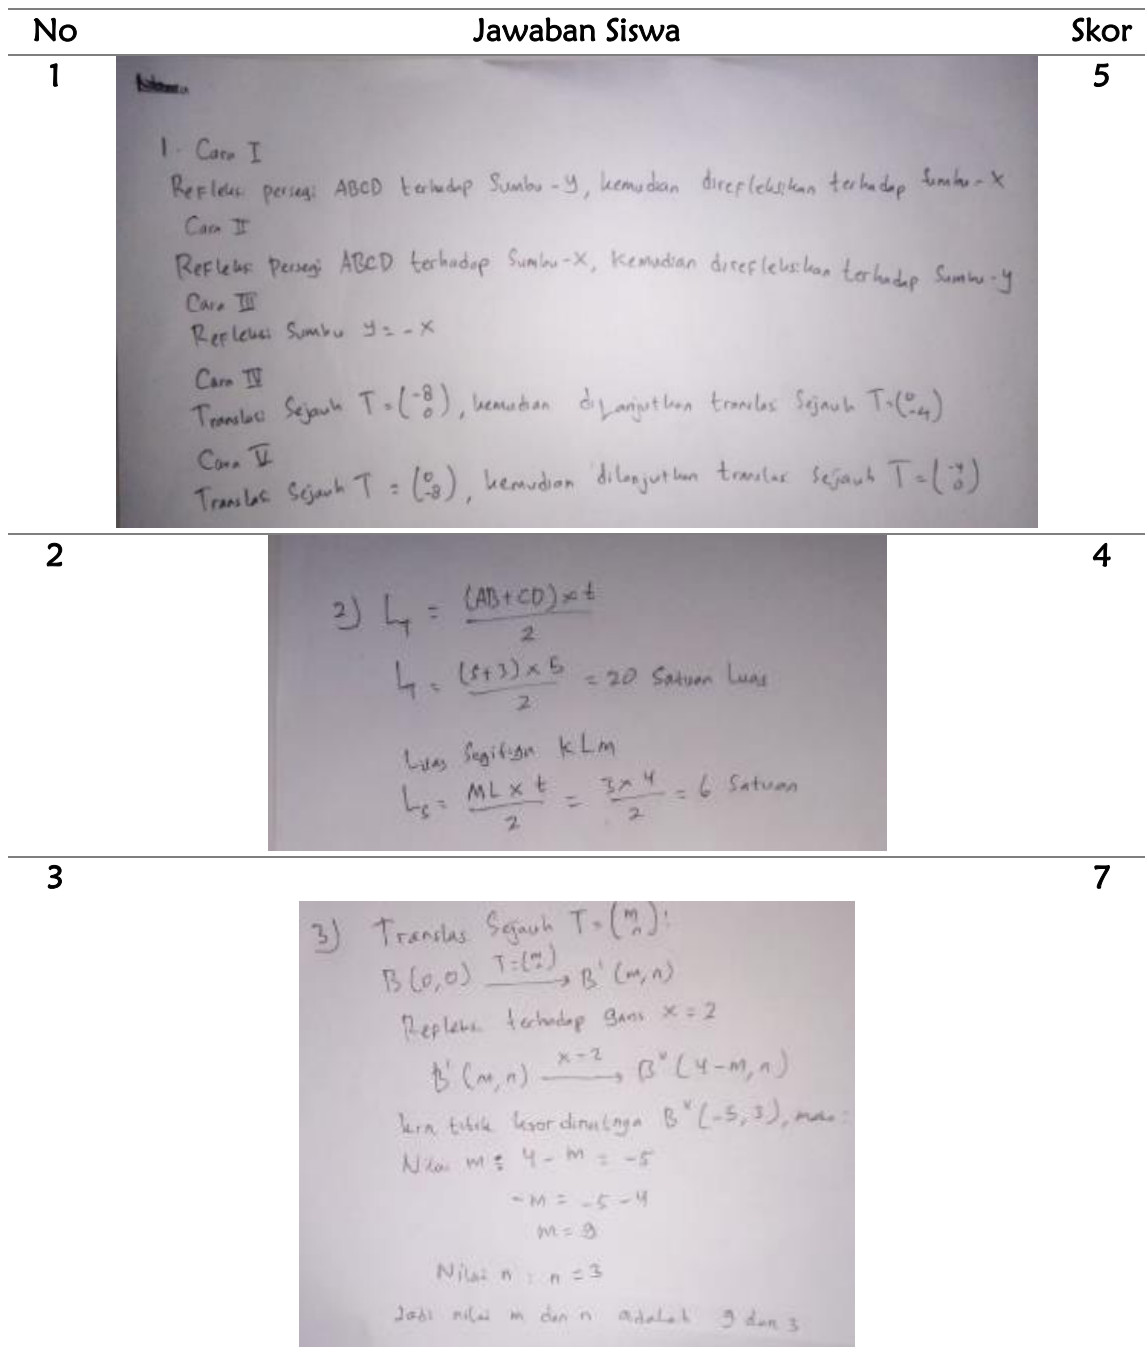 No Jawaban Siswa Skor
1 5
1. Cara I
Refleksi persegi ABCD terhadap Sumbu-y, kemudian direfleksikan terhadap Sumbu-x
Cara II
Refleksi Persegi ABCD terhadap Sumbu-x, Kemudian direfleksikan terhadap Sumbu-y
Cara III
Refleksi Sumbu y = -x
Cara IV
Translasi Sejauh T = (-8 0), kemudian dilanjutkan translasi Sejauh T = (0 -4)
Cara V
Translasi Sejauh T = (0 -8), kemudian dilanjutkan translasi Sejauh T = (-4 0)
2 4
2) L_T = (AB+CD) x t / 2
L_T = (5+3) x 5 / 2 = 20 Satuan Luas
Luas Segitiga KLM
L_S = ML x t / 2 = 3 x 4 / 2 = 6 Satuan
3 7
3) Translasi Sejauh T = (m n) :
B (0,0) T = (m n) → B' (m,n)
Repleksi terhadap garis x = 2
B' (m,n) x = 2 → B" (4-m, n)
krn titik koordinatnya B" (-5, 3), maka :
Nilai m : 4 - m = -5
-m = -5 - 4
m = 9
Nilai n : n = 3
Jadi nilai m dan n adalah 9 dan 3